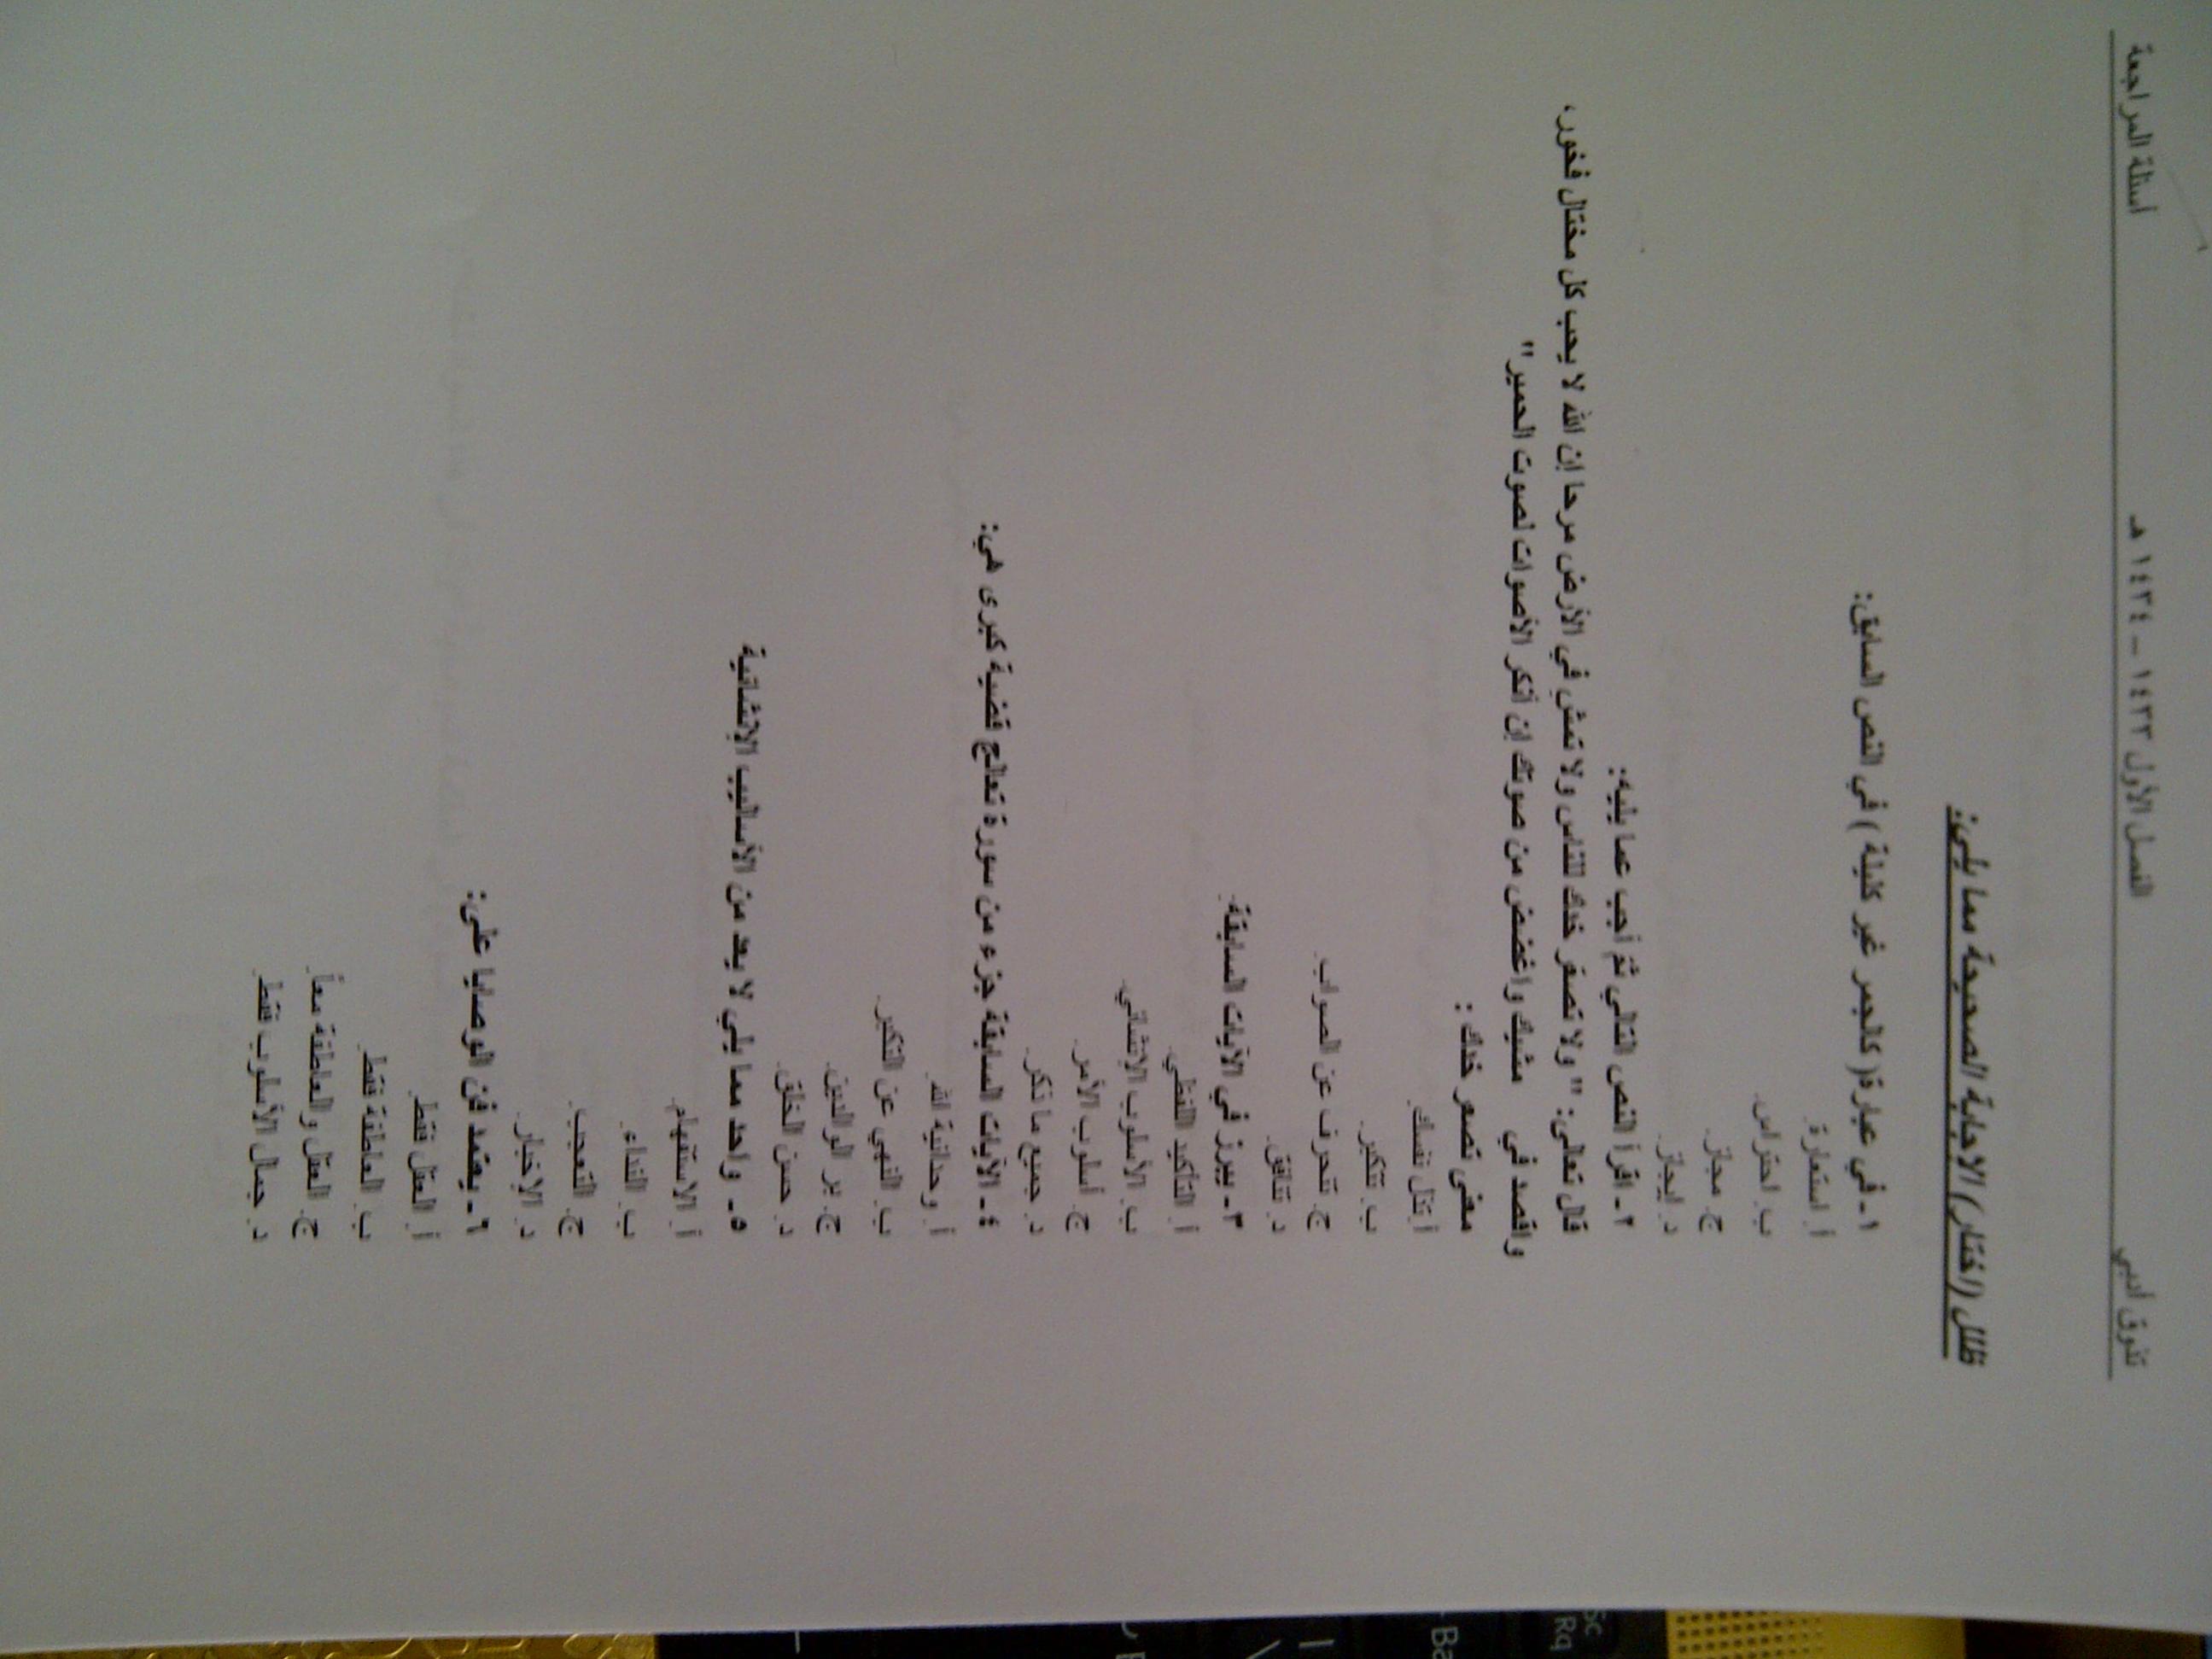 تذوق أدبي الفصل الأول ١٤٣٣ - ١٤٣٤ هـ أسئلة المراجعة
ظلل (اختار) الاجابة الصحيحة مما يلي:
١- في عبارة( كالجمر غير كليلة ) في النص السابق:
أ. استعارة.
ب. احتراس.
ج. مجاز.
د. ايجاز.
٢- اقرأ النص التالي ثم أجب عما يليه:
قال تعالى: " ولا تصعر خدك للناس ولا تمش في الأرض مرحا إن الله لا يحب كل مختال فخور،
واقصد في مشيك واغضض من صوتك إن أنكر الأصوات لصوت الحمير"
معنى تصعر خدك :
أ. تذل نفسك.
ب. تتكبر.
ج. تنحرف عن الصواب.
د. تنافق.
٣- يبرز في الآيات السابقة.
أ. التأكيد اللفظي.
ب. الأسلوب الإنشائي.
ج. أسلوب الأمر.
د. جميع ما ذكر.
٤- الآيات السابقة جزء من سورة تعالج قضية كبرى هي:
أ. وحدانية الله.
ب. النهي عن التكبر.
ج. بر الوالدين.
د. حسن الخلق.
٥- واحد مما يلي لا يعد من الأساليب الإنشائية
أ. الاستفهام.
ب. النداء.
ج. التعجب.
د. الإخبار.
٦- يعتمد فن الوصايا على:
أ. العقل فقط.
ب. العاطفة فقط.
ج. العقل والعاطفة معاً.
د. جمال الأسلوب فقط.
Sc
Rq
Ba